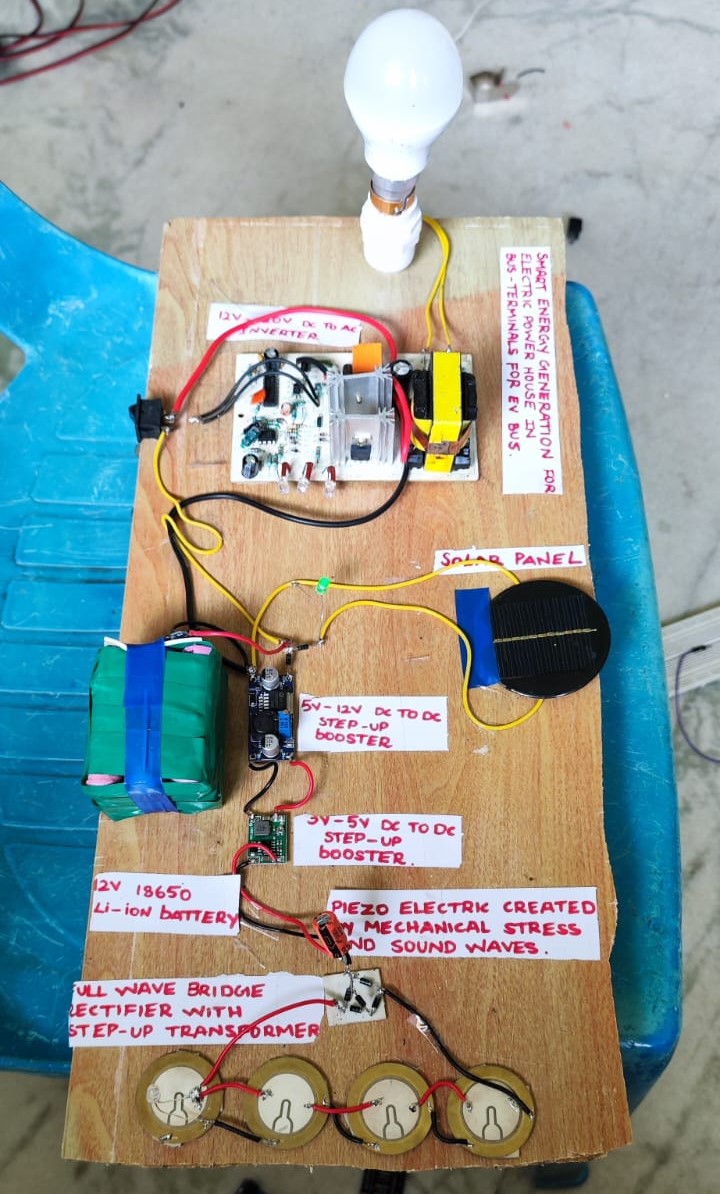 SMART ENERGY GENERATION FOR
ELECTRIC POWER HOUSE IN
BUS-TERMINALS FOR EV BUS.
DC TO AC
INVERTER.
SOLAR PANEL
5V-12V DC TO DC
STEP-UP
BOOSTER
3V-5V DC TO DC
STEP-UP
BOOSTER.
12V 18650
Li-ion BATTERY
PIEZO ELECTRIC CREATED
MECHANICAL STRESS
AND SOUND WAVES.
FULL WAVE BRIDGE
RECTIFIER WITH
STEP-UP TRANSFORMER